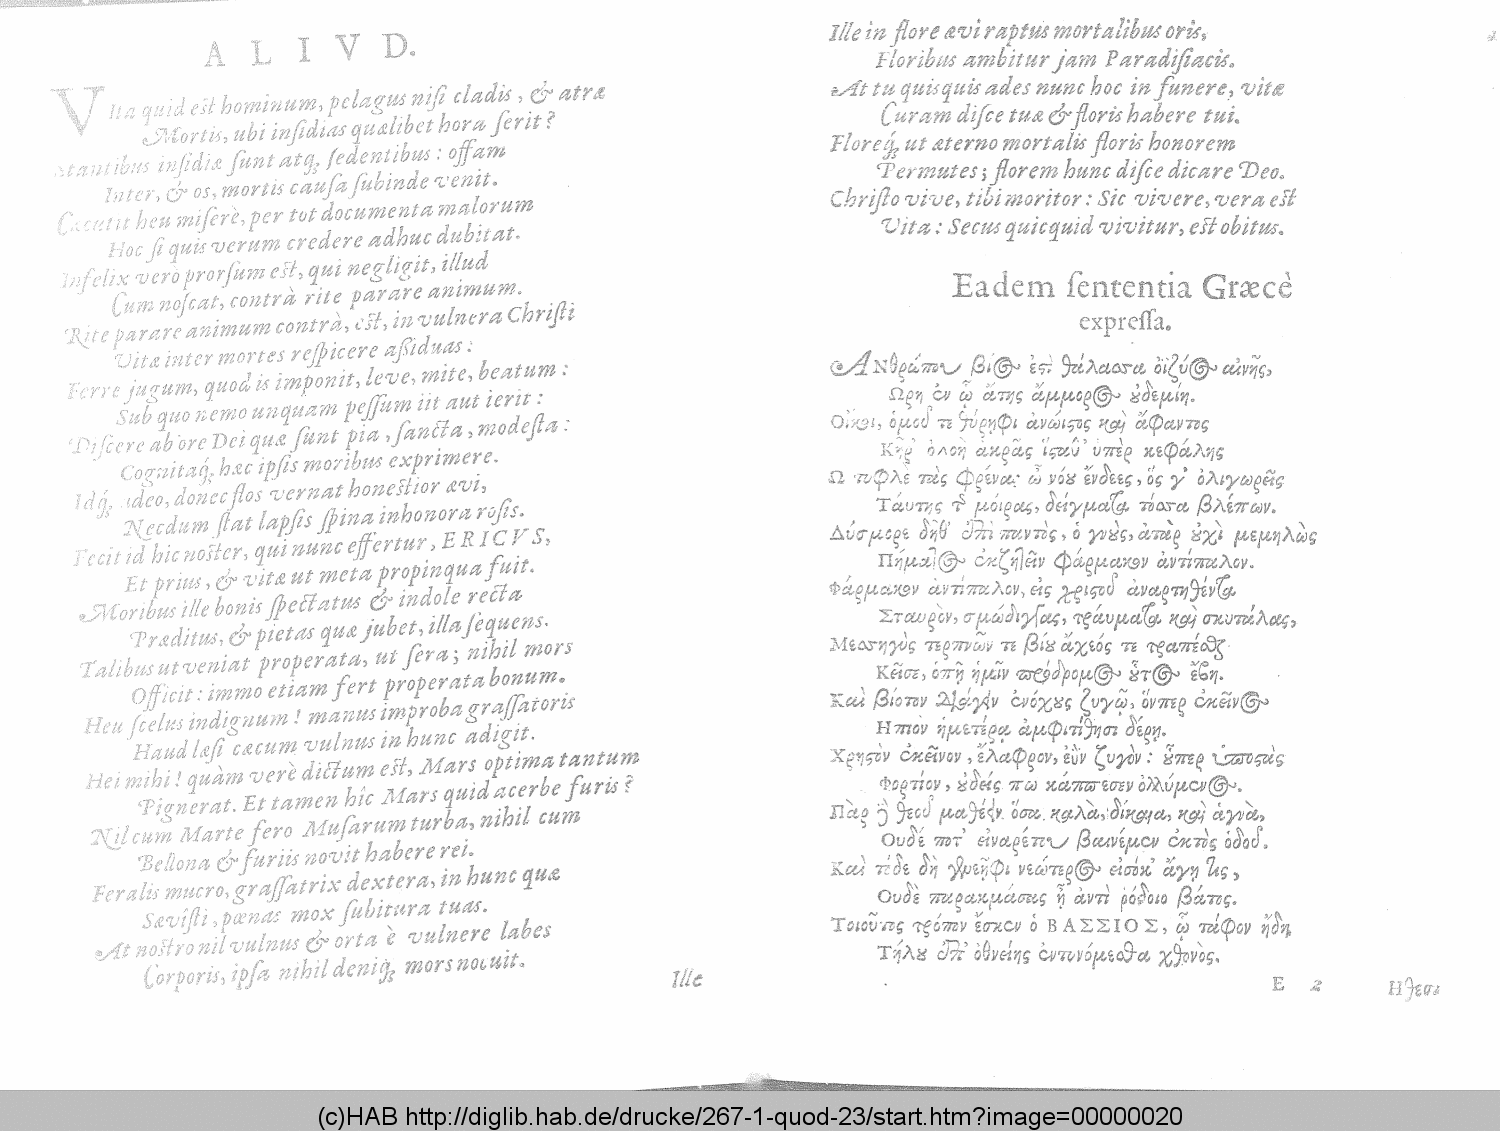 ALIVD.
VIta quid est hominum, pelagus nisi cladis, & atræ
Mortis, ubi insidias quælibet hora serit?
Stantibus insidiæ sunt atq; sedentibus: offam
Inter, & os, mortis causa subinde venit.
Cæcutit heu miserè, per tot documenta malorum
Hoc si quis verum credere adhuc dubitat.
Infelix verò prorsum est, qui negligit, illud
Cum noscat, contrà rite parare animum.
Rite parare animum contrà, est, in vulnera Christi
Vitæ inter mortes respicere aßiduas:
Ferre jugum, quod is imponit, leve, mite, beatum:
Sub quo nemo unquam pessum iit aut ierit:
Discere ab ore Dei quæ sunt pia, sancta, modesta:
Cognitaq; hæc ipsis moribus exprimere.
Idq; adeo, donec flos vernat honestior ævi,
Necdum stat lapsis spina inhonora rosis.
Fecit id hic noster, qui nunc effertur, ERICVS,
Et prius, & vitæ ut meta propinqua fuit.
Moribus ille bonis spectatus & indole recta
Præditus, & pietas quæ jubet, illa sequens.
Talibus ut veniat properata, ut sera; nihil mors
Officit: immo etiam fert properata bonum.
Heu scelus indignum! manus improba grassatoris
Haud læsi cæcum vulnus in hunc adigit.
Hei mihi! quàm verè dictum est, Mars optima tantum
Pignerat. Et tamen hîc Mars quid acerbe furis?
Nil cum Marte fero Musarum turba, nihil cum
Bellona & furiis novit habere rei.
Feralis mucro, grassatrix dextera, in hunc quæ
Sævisti, pœnas mox subitura tuas.
At nostro nil vulnus & orta è vulnere labes
Corporis, ipsa nihil deniq; mors nocuit.
Ille
Ille in flore ævi raptus mortalibus oris,
Floribus ambitur jam Paradisiacis.
At tu quisquis ades nunc hoc in funere, vitæ
Curam disce tuæ & floris habere tui.
Floreq; ut æterno mortalis floris honorem
Permutes; florem hunc disce dicare Deo.
Christo vive, tibi moritor: Sic vivere, vera est
Vita: Secus quicquid vivitur, est obitus.
Eadem sententia Græcè
expressa.
ΑΝθρώπου βίος ἐστὶ θάλασσα ὀϊζύος αἰνῆς,
Ωρη ἐν ᾧ ἄτης ἄμμορος οὐδεμίη.
Οἴκοι, ὁμοῦ τε θύρηφι ἀνώϊστος καὶ ἄφαντος
Κὴρ ὀλοὴ ἀκρᾶς ἵσταθ' ὑπὲρ κεφάλης
Ω τυφλὲ τὰς φρένας ὦ νόυ ἔνδεες, ὅς γ' ὀλιγωρεῖς
Ταύτης τῆς μοίρας, δείγματα πόσσα βλέπων.
Δύσμορε δῆθ' ἐπὶ παντὸς, ὁ γνοὺς, ἀτὰρ οὐχὶ μεμηλὼς
Πήματος ἐκζητεῖν φάρμακον ἀντίπαλον.
Φάρμακον ἀντίπαλον, εἰς χριστοῦ ἀναρτηθέντα
Σταυρὸν, σμώδιγγας, τραύματα καὶ σκυτάλας,
Μεσσηγὺς τερπνῶν τε βίου ἄχεός τε τραπέσθαι
Κεῖσε, ὁπῆ ἡμῖν πρόδρομος οὗτος ἔβη.
Καὶ βίοτον διάγειν ἐνόχους ζυγῷ, ὅνπερ ἐκεῖνος
Ηπιον ἡμετέρᾳ ἀμφιτίθησι δέρῃ.
Χρηστὸν ἐκεῖνον, ἔλαφρον, ἐῢν ζυγὸν: οὗπερ ὑποστὰς
Φορτίον, οὐδείς πω κάππεσεν ὀλλύμενος.
Πὰρ δὲ θεοῦ μαθέειν ὅσα καλὰ, δίκαια, καὶ ἁγνὰ,
Ουδέ ποτ' εἰναρέτου βαινέμεν ἐκτὸς ὁδοῦ.
Καὶ τόδε δὴ νεώτερος εἰσόκ' ἄγῃ τις,
Ουδὲ παρακμάσαις ᾖ ἀντὶ ῥόδοιο βάτος.
Τοιοῦτος τρόπον ἔσκεν ὁ ΒΑΣΣΙΟΣ, ᾧ τάφον ἤδη
Τήλου ἐπ' ὀθνείης ἐντυνόμεσθα χθονὸς.
E 2
Ηθεσι
(c)HAB http://diglib.hab.de/drucke/267-1-quod-23/start.htm?image=00000020